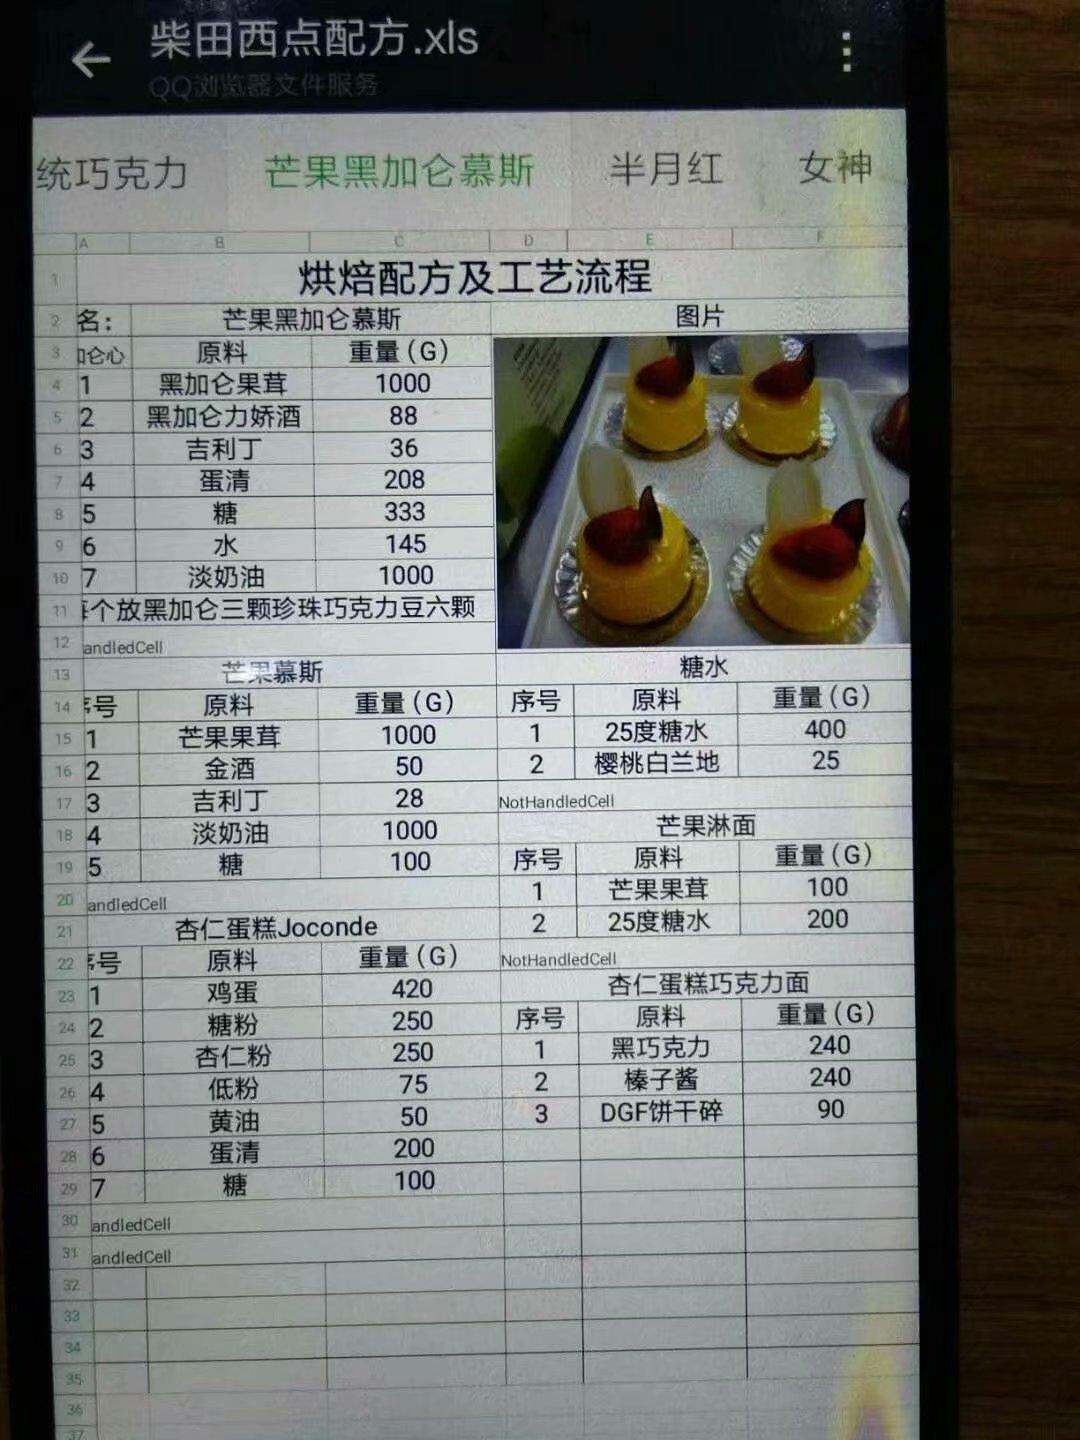 柴田西点配方.xls
QQ浏览器文件服务
统巧克力 芒果黑加仑慕斯 半月红 女神
A B C D E F
1 烘焙配方及工艺流程
2 名: 芒果黑加仑慕斯 图片
3 加仑心 原料 重量(G)
4 1 黑加仑果茸 1000
5 2 黑加仑力娇酒 88
6 3 吉利丁 36
7 4 蛋清 208
8 5 糖 333
9 6 水 145
10 7 淡奶油 1000
11 每个放黑加仑三颗珍珠巧克力豆六颗
12 andledCell
13 芒果慕斯 糖水
14 序号 原料 重量(G) 序号 原料 重量(G)
15 1 芒果果茸 1000 1 25度糖水 400
16 2 金酒 50 2 樱桃白兰地 25
17 3 吉利丁 28 NotHandledCell
18 4 淡奶油 1000 芒果淋面
19 5 糖 100 序号 原料 重量(G)
20 andledCell 1 芒果果茸 100
21 杏仁蛋糕Joconde 2 25度糖水 200
22 序号 原料 重量(G) NotHandledCell
23 1 鸡蛋 420 杏仁蛋糕巧克力面
24 2 糖粉 250 序号 原料 重量(G)
25 3 杏仁粉 250 1 黑巧克力 240
26 4 低粉 75 2 榛子酱 240
27 5 黄油 50 3 DGF饼干碎 90
28 6 蛋清 200
29 7 糖 100
30 andledCell
31 andledCell
32
33
34
35
36
37